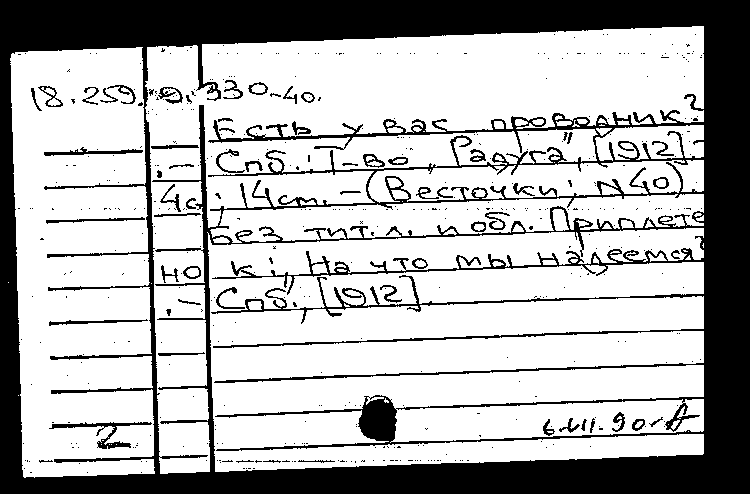 18.259.9.330-40.
Есть у вас проводник?
.— Спб.: Т-во „Радуга", [1912].-
4с.; 14см. — (Весточки; N 40).
Без тит. л. и обл. Приплете
но к: „На что мы надеемся?
.— Спб., [1912].
2